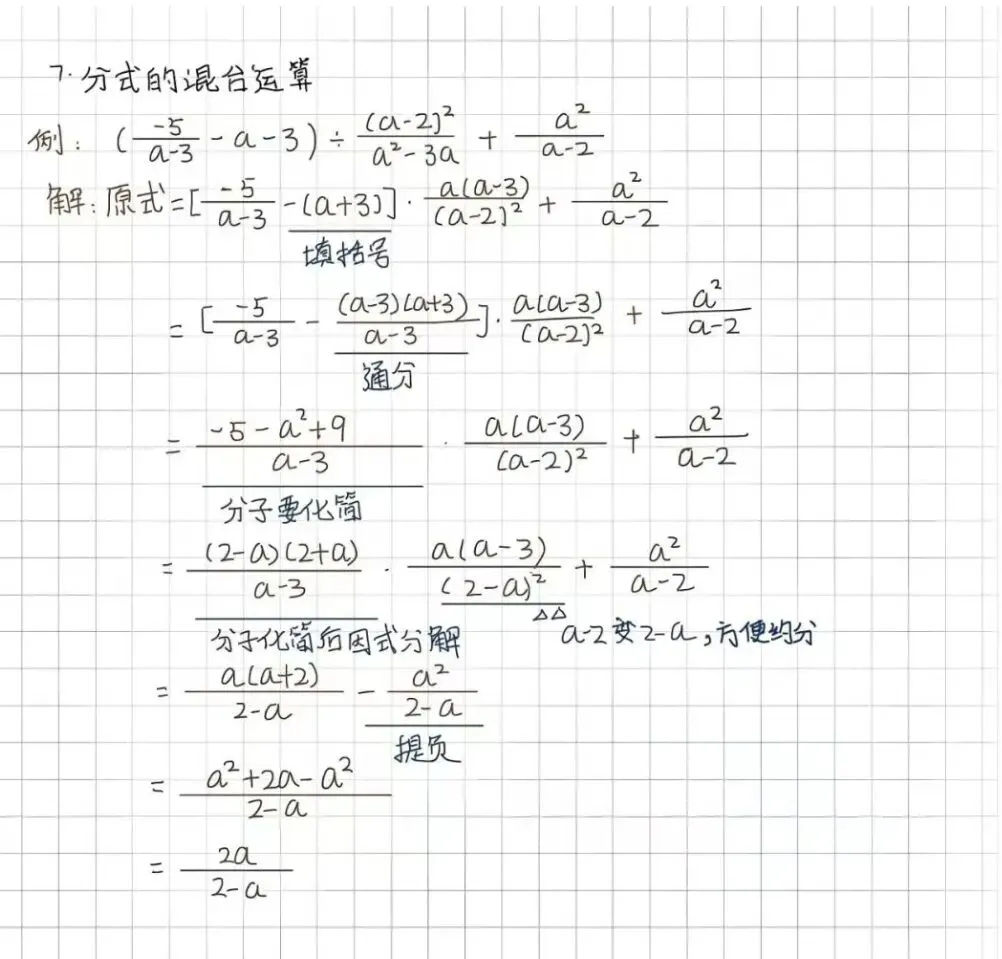 7.分式的混合运算
例: (-5/(a-3) - a - 3) ÷ (a-2)²/(a²-3a) + a²/(a-2)
解:原式=[-5/(a-3) -(a+3)]·a(a-3)/(a-2)² + a²/(a-2)
填括号
= [-5/(a-3) - (a-3)(a+3)/(a-3)]·a(a-3)/(a-2)² + a²/(a-2)
通分
= (-5-a²+9)/(a-3) · a(a-3)/(a-2)² + a²/(a-2)
分子要化简
= (2-a)(2+a)/(a-3) · a(a-3)/(2-a)² + a²/(a-2)
△△
分子化简后因式分解 a-2变2-a,方便约分
= a(a+2)/(2-a) - a²/(2-a)
提负
= (a²+2a-a²)/(2-a)
= 2a/(2-a)